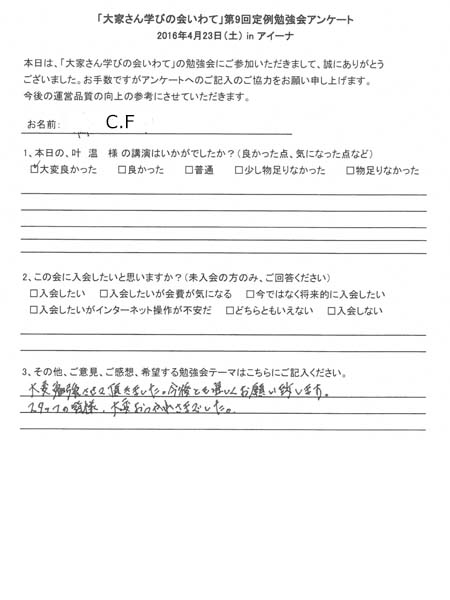 「大家さん学びの会いわて」第9回定例勉強会アンケート
2016年4月23日(土) in アイーナ
本日は、「大家さん学びの会いわて」の勉強会にご参加いただきまして、誠にありがとう
ございました。お手数ですがアンケートへのご記入のご協力をお願い申し上げます。
今後の運営品質の向上の参考にさせていただきます。
お名前: C.F
1、本日の、叶 温 様 の講演はいかがでしたか?(良かった点、気になった点など)
☑大変良かった □良かった □普通 □少し物足りなかった □物足りなかった
2、この会に入会したいと思いますか?(未入会の方のみ、ご回答ください)
□入会したい □入会したいが会費が気になる □今ではなく将来的に入会したい
□入会したいがインターネット操作が不安だ □どちらともいえない □入会しない
3、その他、ご意見、ご感想、希望する勉強会テーマはこちらにご記入ください。
大変勉強させて頂きました。今後とも宜しくお願い致します。
スタッフの皆様、大変おつかれさまでした。